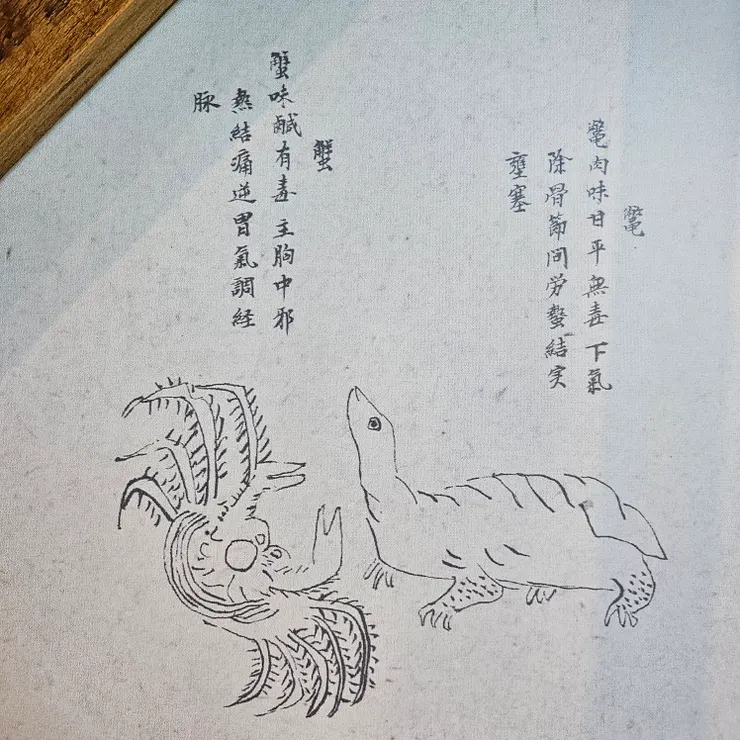 鼈
鼈肉味甘平無毒下氣
除骨節間労螫結実
壅塞
蟹
蟹味鹹有毒主胸中邪
熱結痛逆胃氣調経
脉